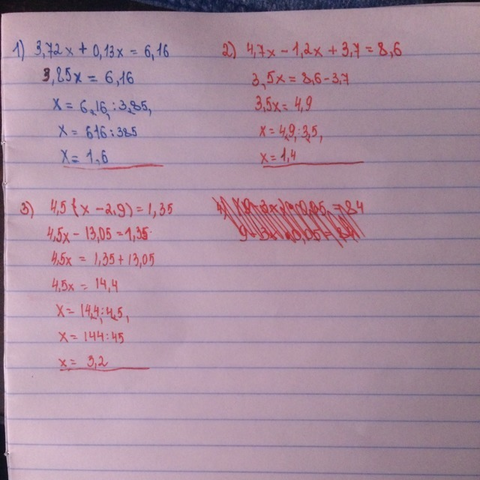 1) 3,72x + 0,13x = 6,16
3,85x = 6,16
x = 6,16 : 3,85,
x = 616 : 385
x = 1,6
2) 4,7x - 1,2x + 3,7 = 8,6
3,5x = 8,6 - 3,7
3,5x = 4,9
x = 4,9 : 3,5,
x = 1,4
3) 4,5 (x - 2,9) = 1,35
4,5x - 13,05 = 1,35
4,5x = 1,35 + 13,05
4,5x = 14,4
x = 14,4 : 4,5,
x = 144 : 45
x = 3,2